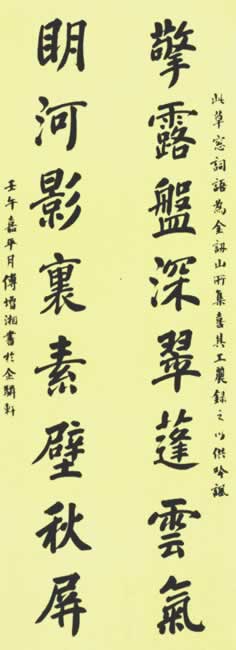 此草窓詞語為金訒山所集喜其工麗錄之以供吟諷
擎露盤深翠蓬雲氣
眀河影裏素壁秋屏
壬午嘉平月傅增湘書於企驎軒